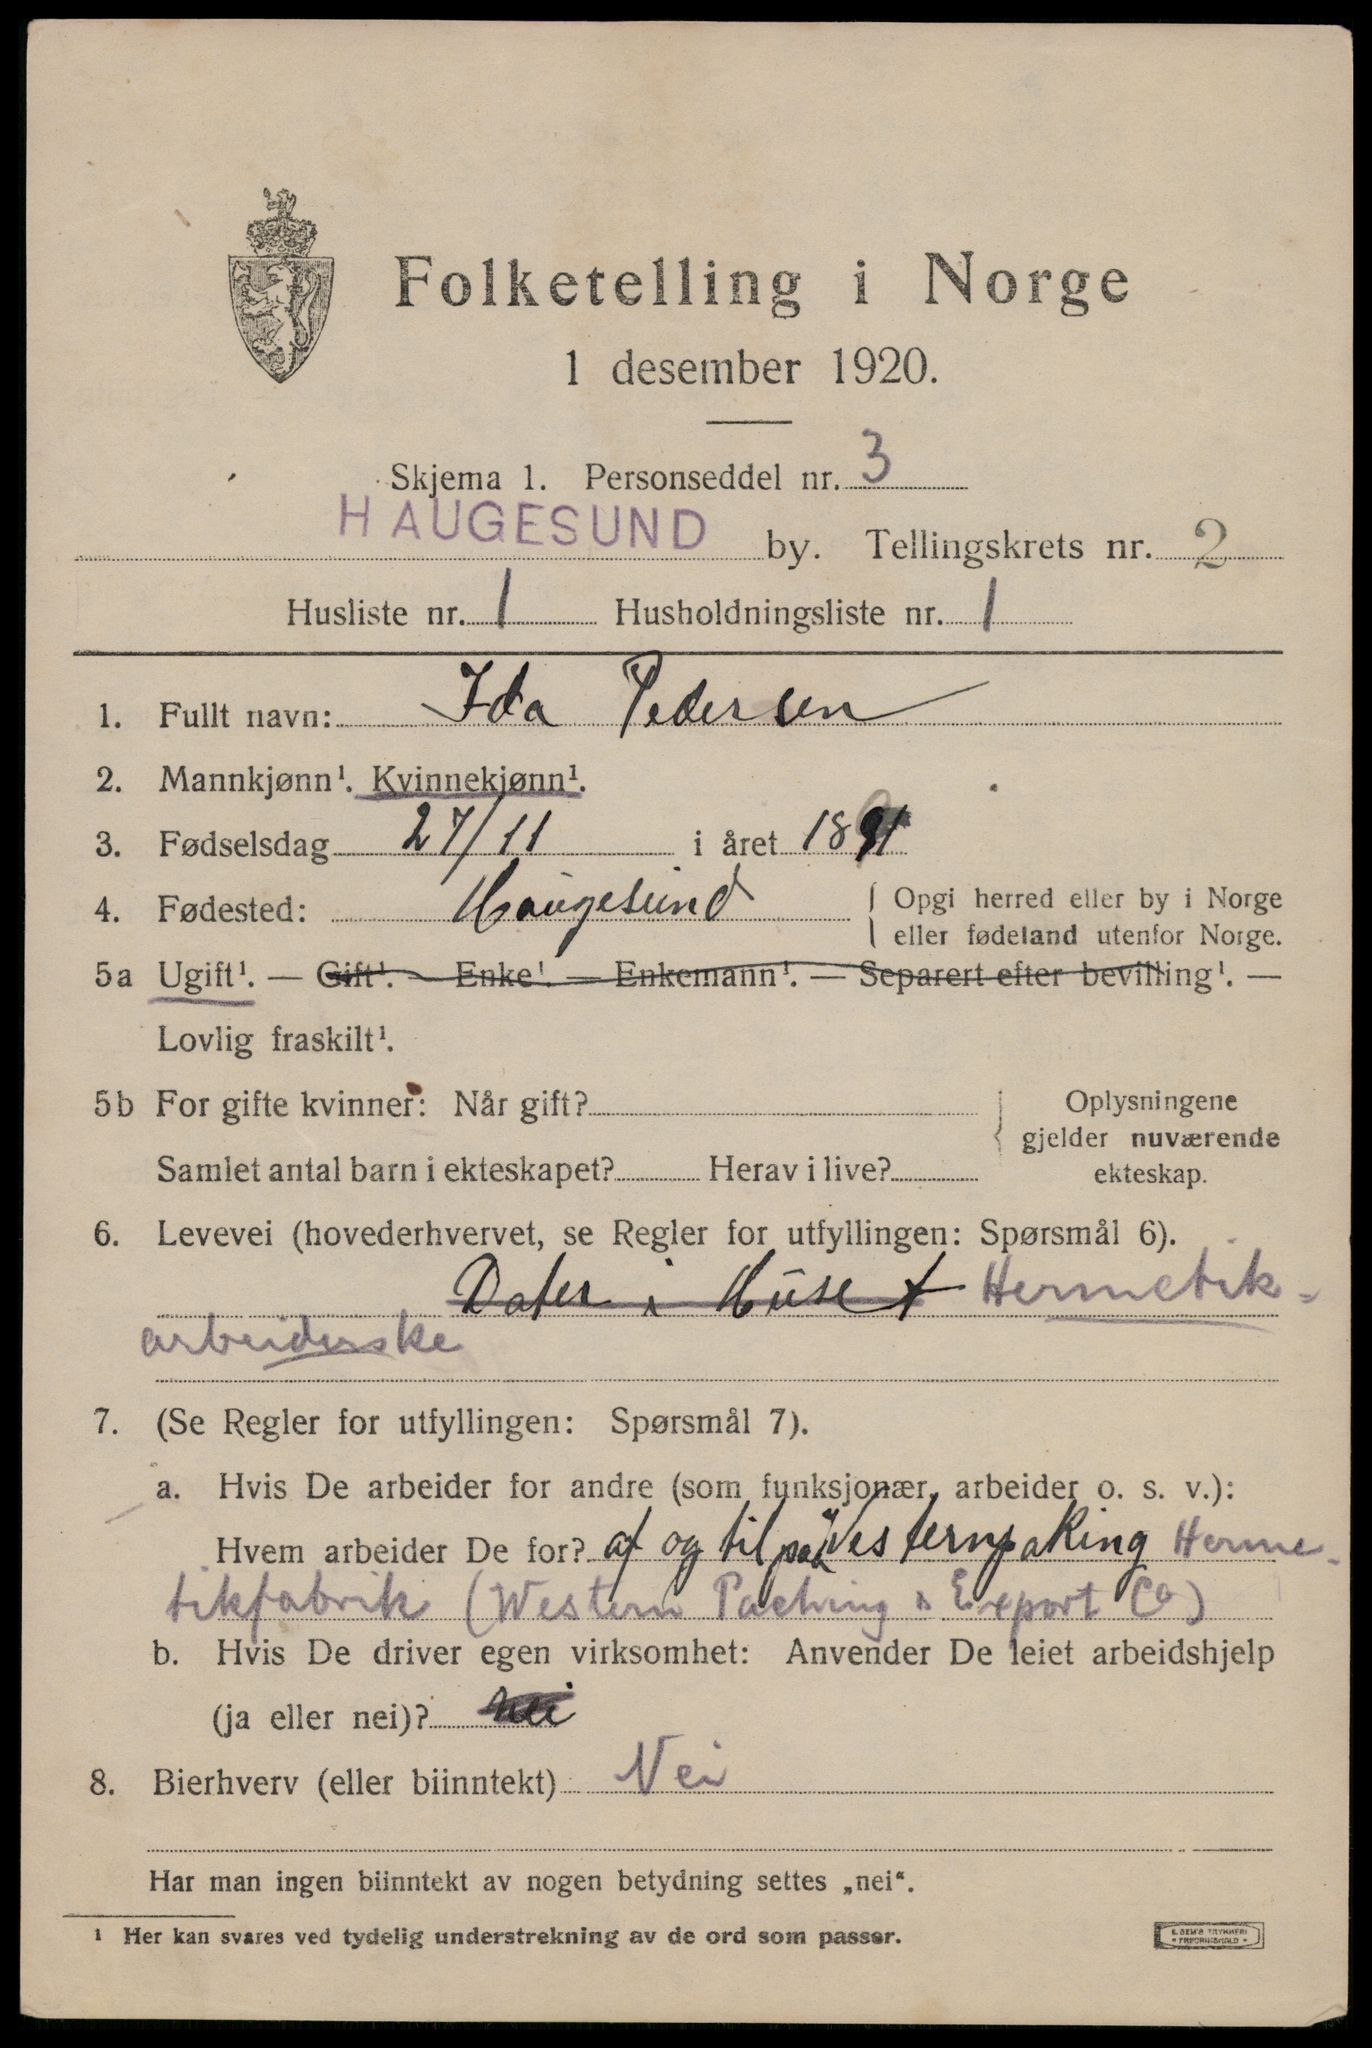 Folketelling i Norge
1 desember 1920.
Skjema 1. Personseddel nr. 3
HAUGESUND by. Tellingskrets nr. 2
Husliste nr. 1 Husholdningsliste nr. 1
1. Fullt navn: Ida Pedersen
2. Mannkjønn¹. Kvinnekjønn¹.
3. Fødselsdag 27/11 i året 1891
4. Fødested: Haugesund { Opgi herred eller by i Norge
eller fødeland utenfor Norge.
5a Ugift¹. — Gift¹. — Enke¹. — Enkemann¹. — Separert efter bevilling¹. —
Lovlig fraskilt¹.
5b For gifte kvinner: Når gift? Oplysningene
gjelder nuværende
Samlet antal barn i ekteskapet? Herav i live? ekteskap.
6. Levevei (hovederhvervet, se Regler for utfyllingen: Spørsmål 6).
Dater i Huset Hermetik-
arbeiderske
7. (Se Regler for utfyllingen: Spørsmål 7).
a. Hvis De arbeider for andre (som funksjonær, arbeider o. s. v.):
Hvem arbeider De for? af og til paa Vesternpaking Herme-
tikfabrik (Western Packing & Export Co)
b. Hvis De driver egen virksomhet: Anvender De leiet arbeidshjelp
(ja eller nei)? nei
8. Bierhverv (eller biinntekt) Nei
Har man ingen biinntekt av nogen betydning settes „nei“.
¹ Her kan svares ved tydelig understrekning av de ord som passer.
E. SEM'S TRYKKERI
• FREDRIKSHALD •